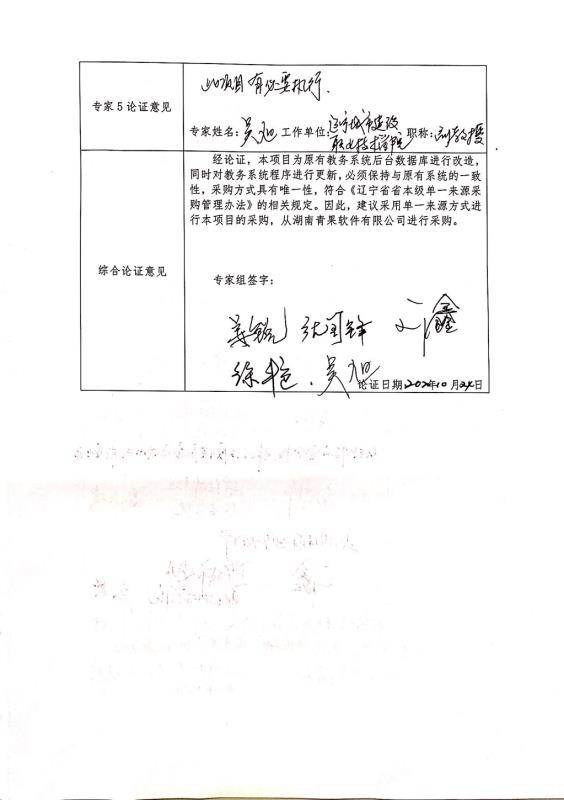 此项目有必要执行.
专家5论证意见
专家姓名: 吴旭 工作单位: 辽宁城市建设职业技术学院 职称: 副教授
经论证，本项目为原有教务系统后台数据库进行改造，
同时对教务系统程序进行更新，必须保持与原有系统的一致
性，采购方式具有唯一性，符合《辽宁省省本级单一来源采
购管理办法》的相关规定。因此，建议采用单一来源方式进
行本项目的采购，从湖南青果软件有限公司进行采购。
综合论证意见
专家组签字：
刘鑫
徐艳 吴旭
论证日期 10月24日